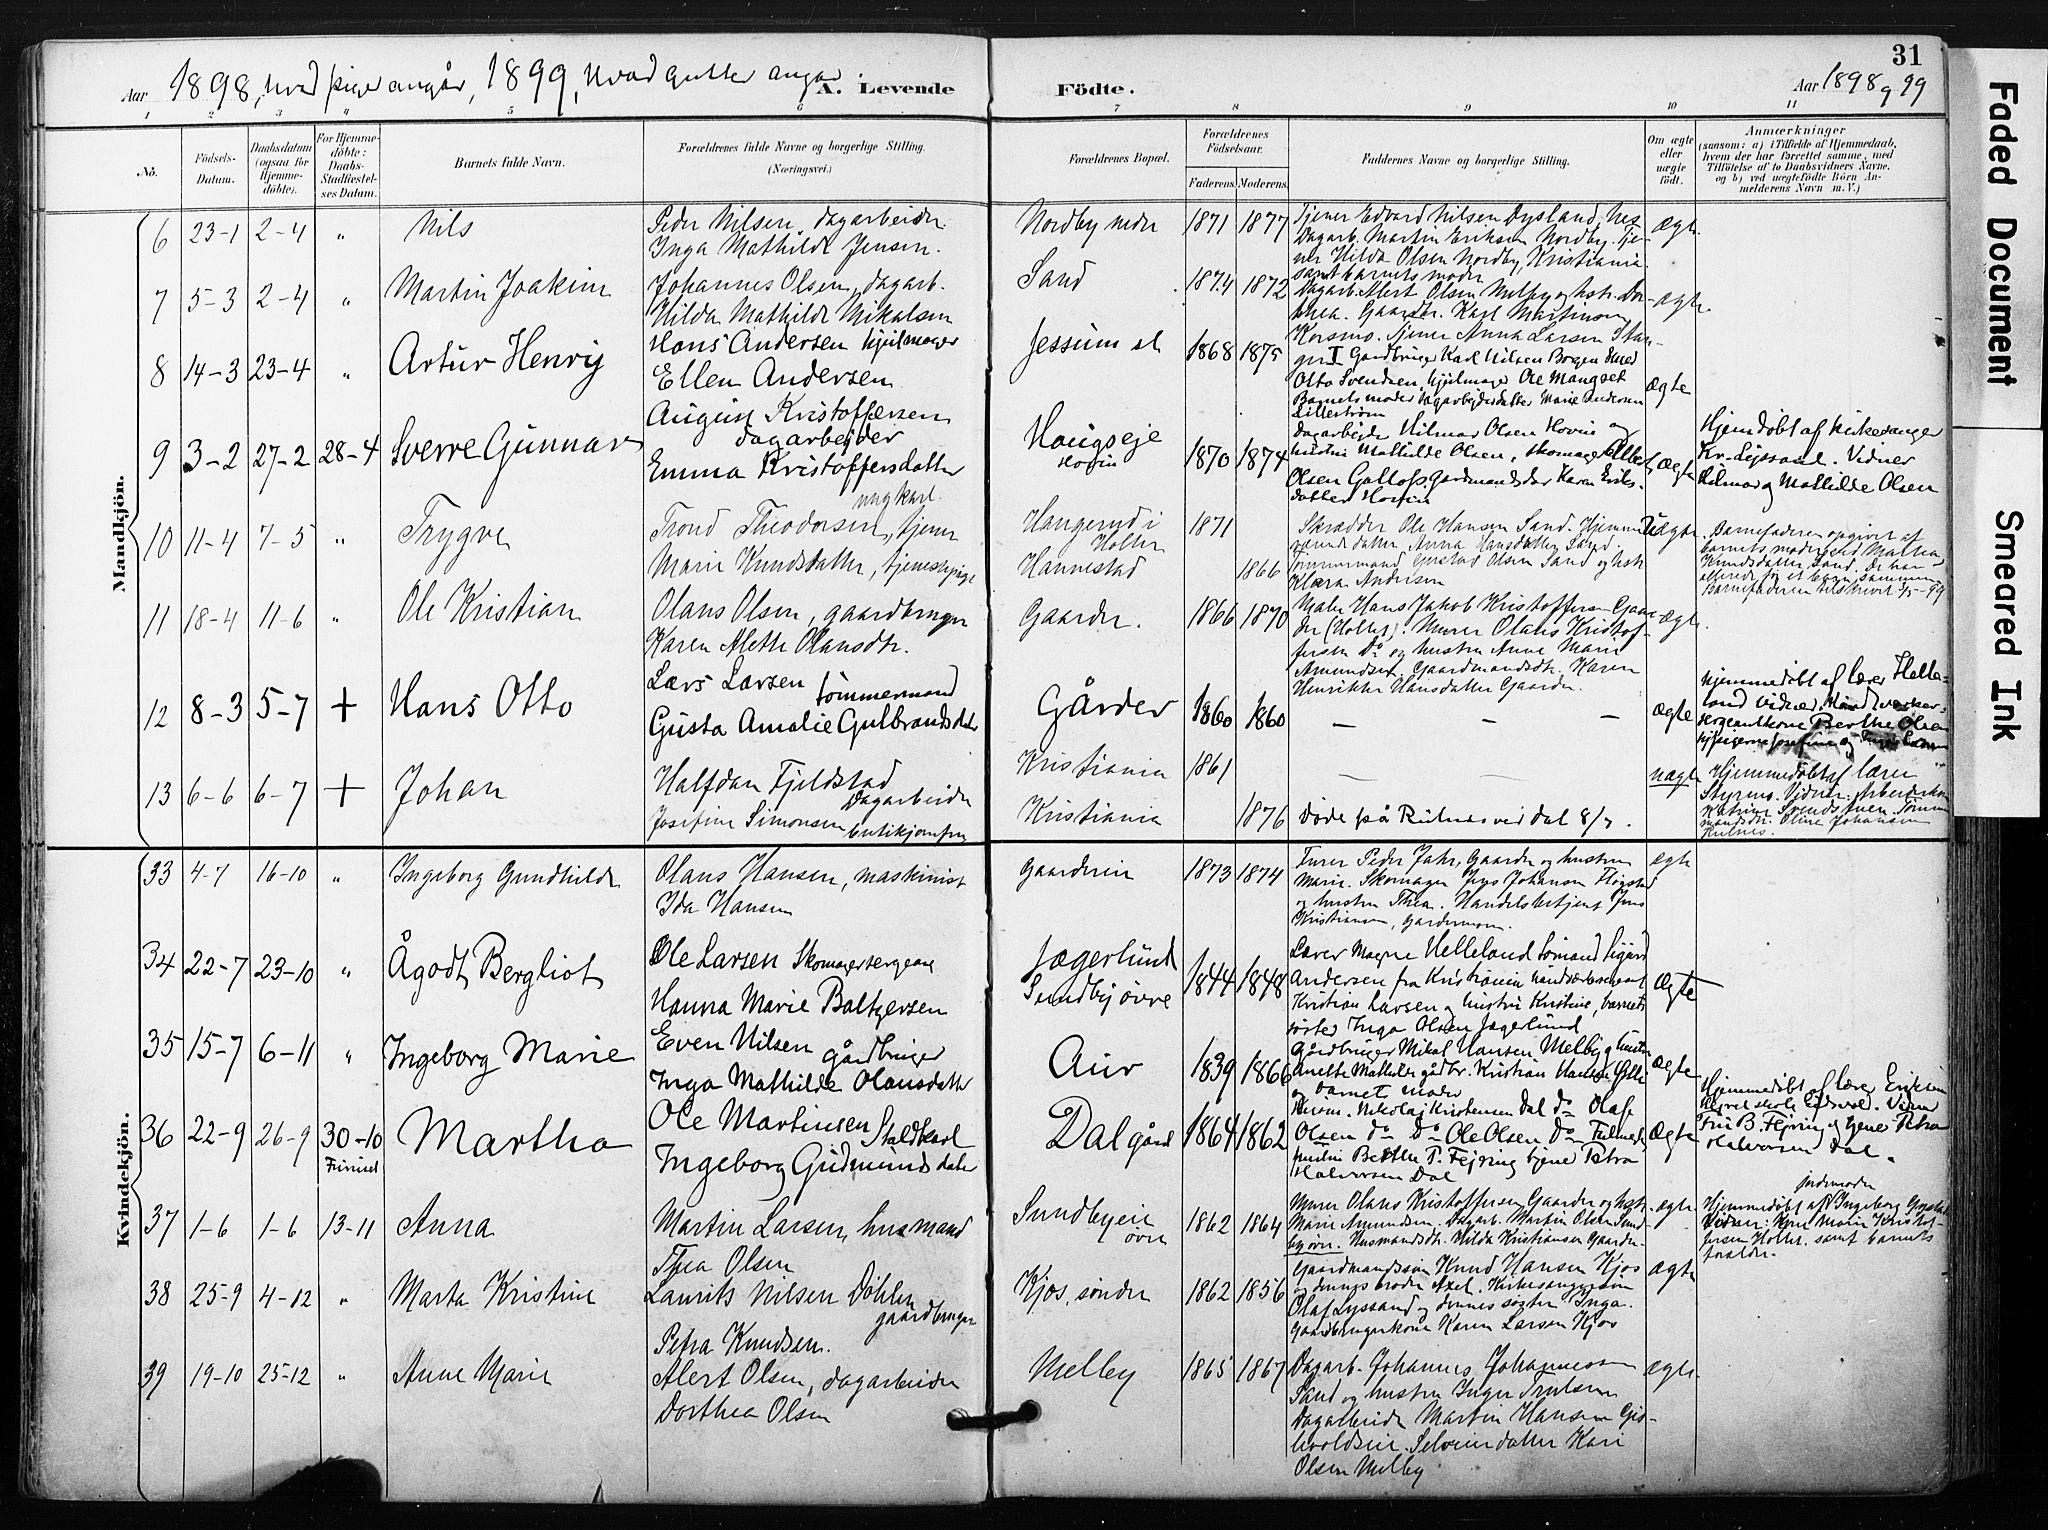 Aar 1898, hvad piger angår, 1899, hvad gutter angår. A. Levende
Födte. Aar 1898 og 99
31
1 2 3 4 5 6
7 8 9 10 11
No. Födsels-Datum. Daabsdatum (ogsaa for Hjemmedöbte). For Hjemmedöbte: Daabs-Stadfæstelses Datum. Barnets fulde Navn. Forældrenes fulde Navne og borgerlige Stilling. (Næringsvei.)
Forældrenes Bopæl. Forældrenes Födselsaar. Faderens. Moderens. Faddernes Navne og borgerlige Stilling. Om ægte eller uægte födt. Anmærkninger (saasom: a) i Tilfælde af Hjemmedaab, hvem der har forrettet samme, med Tilföielse af to Daabsvidners Navne, og b) ved uægtefödte Börn Anmelderens Navn m. V.)
Mandkjön.
6 23-1 2-4 " Nils Peder Nilsen, dagarbeider
Inga Mathilde Jensen.
Nordby nedre 1871 1877 Tjener Edvard Nilsen Dysland, Nes
Dagarb. Martin Eriksen Nordby. Tje-
ner Hilda Olsen Nordby, Kristiania
samt barnets moder
ægte
7 5-3 2-4 " Martin Joakim Johannes Olsen, dagarb.
Hilda Mathilde Mikalsen
Sand 1874 1872 Dagarb. Alert Olsen Melby og hstr. Dor-
thea. Gaardbr. Karl Martinsen
Korsmo. Tjener Anna Larsen
ægte
8 14-3 23-4 " Artur Henrig Hans Andersen hjulmager
Ellen Andersen
Jessum st 1868 1875 Gardbruger Karl Nilsen Borgen
Otto Svendsen, hjulmager Ole Mangset
Barnets moder Dagarbejderdatter Marie Andersen
Lillestrøm
ægte
9 3-2 27-2 28-4 Sverre Gunnar August Kristoffersen
dagarbejder
Emma Kristoffersdatter
Haugseje
Hovin 1870 1874 Dagarbejder Hilmar Olsen Hovin og
hustru Mathilde Olsen, skomager Albert
Olsen Gardmandsdtr Karen Eriks-
datter Hovin
ægte
Hjemdøbt af kirkesanger
Kr. Lyssand. Vidner
Hilmar og Mathilde Olsen
10 11-4 7-5 " Trygve ungkarl.
Trond Theodorsen, tjener
Marie Knudsdatter, tjenestepige
Haugerud i
Holter
Hannestad 1871 1866
Skrædder Ole Hansen Sand. Hjemme-
værende datter Anna Hansdatter Sand.
Tømmermand Gustav Olsen Sand og hstr.
Klara Andersen
Uægte
Barnefaderen opgivet af
barnets moder
Knudsdatter Sand. De har
allerede før et barn sammen
Barnefaderen tilskrevet 9/5-99
11 18-4 11-6 " Ole Kristian Olaus Olsen, gaardbruger
Karen Alette Olausdtr.
Gaarder. 1866 1870 Maler Hans Jakob Kristoffersen Gaar-
der (Holter). Murer Olaus Kristof-
fersen Do og hustru Anne Marie
Amundsen, Gaardmandsdtr. Karen
Henrikke Hansdatter Gaarder.
ægte
12 8-3 5-7 + Hans Otto Lars Larsen tømmermand
Gusta Amalie Gulbrandsdatter
Gårder 1860 1860 — — — ægte
Hjemmedøbt af lærer Helle-
land Vidner. Håndværker-
sergeantkone Berthe Olsen
13 6-6 6-7 + Johan Halfdan Fjeldstad
Dagarbeider
Josefine Simonsen butikjomfru
Kristiania 1861
Kristiania 1876 — — Døde på Kulnes ved Dal 8/7. uægte
Hjemmedøbt af lærer
Styrmo. Vidner: Arbeiderkone
Katrine Svendstuen Tømmer-
mandsdtr. Oline Johansen
Kulnes.
Kvindekjön.
33 4-7 16-10 " Ingeborg Gundhilde Olaus Hansen, maskinist
Ida Hansen
Gaardereie 1873 1874 Furer Peder Jahr, Gaarder og hustru
Marie. Skomager Jens Johansen Høgstad
og hustru Thea. Handelsbetjent Jens
Kristiansen, Gardermoen.
ægte
34 22-7 23-10 " Ågodt Bergliot Ole Larsen Skomagersergeant
Hanna Marie Baltzersen
Jægerlund
Sundby øvre 1844 1848
Lærer Magne Helleland Sømand Sigurd
Andersen fra Kristiania håndværkersergeant
Kristian Larsen og hustru Kristine, barnets
søster Inga Olsen Jægerlund
ægte
35 15-7 6-11 " Ingeborg Marie Even Nilsen gårdbruger
Inga Mathilde Olausdatter
Aur 1839 1866 Gårdbruger Mikal Hansen Melby og hustru
Anette Mathilde gårdbr. Kristian Hansen
og barnet moder
ægte
36 22-9 26-9 30-10 Martha Ole Martinsen Staldkarl
Ingeborg Gudmundsdatter
Dal gård 1864 1862 Nikolaj Kristensen Dal do Olaf
Olsen do do Ole Olsen do
hustru Berthe P. Fejring tjener Petra
Halvorsen Dal
ægte
Hjemmedøbt af lærer Eriksen
Eidsvold. Vidner
Fru B. Fejring og tjener Petra
Halvorsen Dal.
37 1-6 1-6 13-11 Anna Martin Larsen, husmand
Thea Olsen
Sundbyeie
øvre 1862 1864 Murer Olaus Kristoffersen Gaarder og hstr.
Marie Amundsen. Dagarb. Martin Olsen Sund-
by øvre. Husmandsdtr. Hilda Kristiansen Gaarder
ægte.
jordmoder
Hjemmedøbt af Ingeborg
Vidner: Kone Marie Kristof-
fersen Holter. samt barnets
forældre.
38 25-9 4-12 " Marta Kristine Laurits Nilsen Döhlen
gaardbruger
Petra Knudsen.
Kjos, søndre 1862 1856 Gaardmandssøn Knud Hansen Kjos
og dennes broder Axel. Kirkesangersøn
Olaf Lyssand og dennes søster Inga.
Gaardbrugerkone Karen Larsen Kjos
ægte
39 19-10 25-12 " Anne Marie Alert Olsen, dagarbeider
Dorthea Olsen
Melby 1865 1867 Dagarb. Johannes Johannessen
Sand og hustru Inger Trulsen
Dagarbeider Martin Hansen Gis-
levoldseie. Selveierdatter Kari
Olsen Melby
ægte.
Faded Document
Smeared Ink